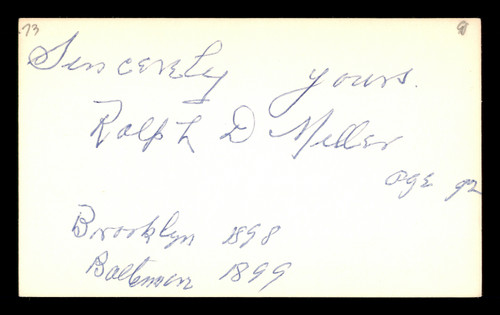 73
Sincerely yours.
Ralph D Miller
age 92
Brooklyn 1898
1899